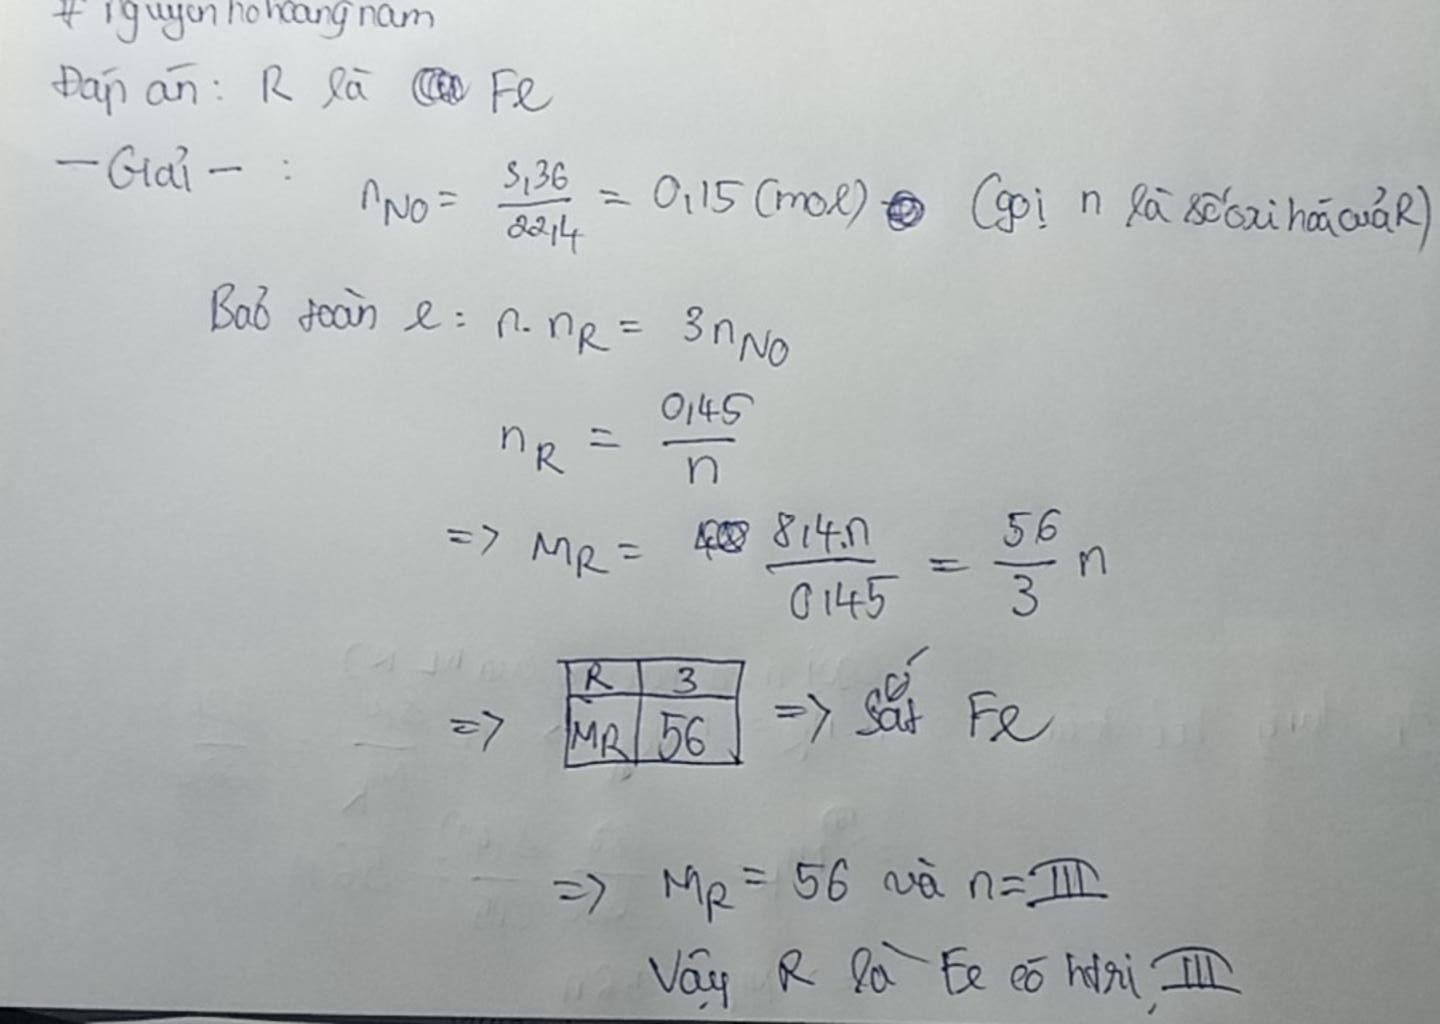 # nguyenhohoangnam
Đáp án: R là Fe
- Giải - :
nNO = 3,36/22,4 = 0,15 (mol) (gọi n là số oxi hoá của R)
Bảo toàn e: n. nR = 3nNO
nR = 0,45/n
=> MR = 8,4.n/0,45 = 56/3 n
=> R 3 => sắt Fe
MR 56
=> MR = 56 và n = III
Vậy R là Fe có htrị III